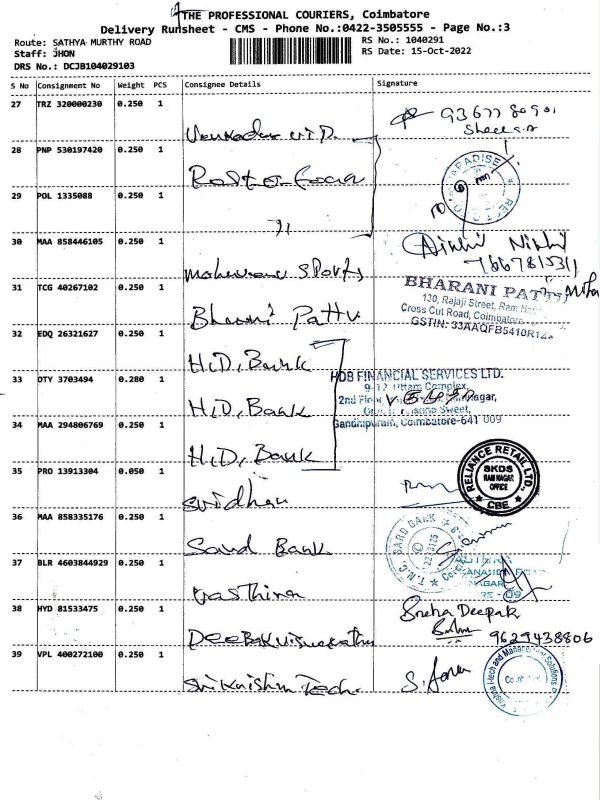 THE PROFESSIONAL COURIERS, Coimbatore
Delivery Runsheet - CMS - Phone No.:0422-3505555 - Page No.:3
Route: SATHYA MURTHY ROAD
RS No.: 1040291
Staff: JHON
RS Date: 15-Oct-2022
DRS No.: DCJB104029103
S No Consignment No Weight PCS Consignee Details Signature
27 TRZ 320000230 0.250 1
Sheela
28 PNP 530197420 0.250 1
PARADISE
29 POL 1335088 0.250 1
11
30 MAA 858446105 0.250 1 Sports Nishil
7667815311
31 TCG 40267102 0.250 1 Bharani Pattu
BHARANI PATTU
130, Rajaji Street, Ram Nagar
Cross Cut Road, Coimbatore
GSTIN: 33AAQFB5410R1Z
32 EDQ 26321627 0.250 1 H.D, Bank
HDB FINANCIAL SERVICES LTD.
33 OTY 3703494 0.280 1 H.D, Bank
Complex,
2nd Floor
34 MAA 294806769 0.250 1 H.D, Bank
Gandhipuram, Coimbatore-641 009
35 PRO 13913304 0.050 1 Sridhar
RELIANCE RETAIL LTD.,
SKDS
RAM NAGAR
OFFICE
CBE
36 MAA 858335176 0.250 1 Sard Bank
T.N.C. SARD BANK
37 BLR 4603844929 0.250 1
38 HYD 81533475 0.250 1 Deepak
Sneha Deepak
9629438806
39 VPL 400272100 0.250 1 Srikrishna Tech
Krishna I-tech and Management Solutions